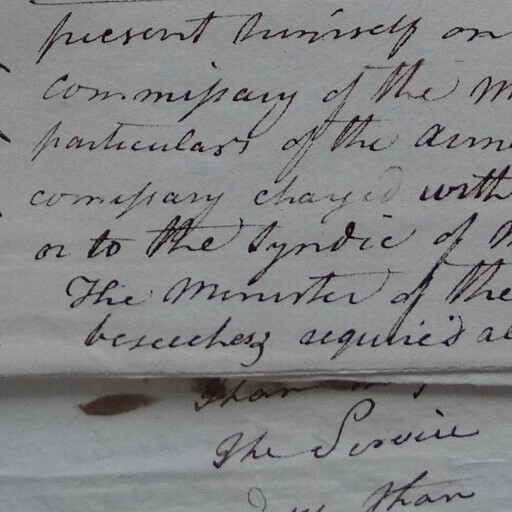 present himself on
commissary of the M
particulars of the anne
comissary charged with
or to the Syndic of
The Minister of the
beseeches, requires al
than
The Service
than